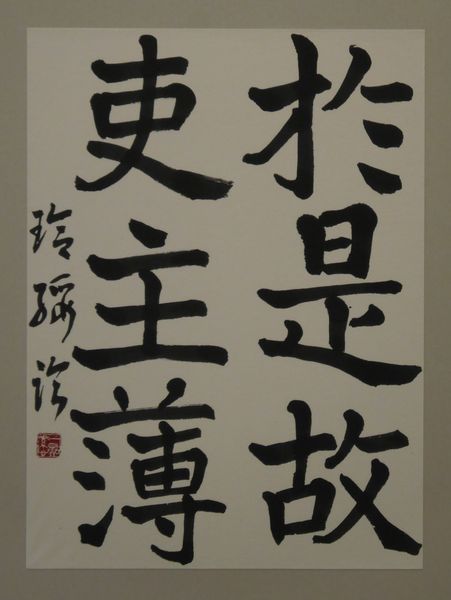 於是故
吏主薄